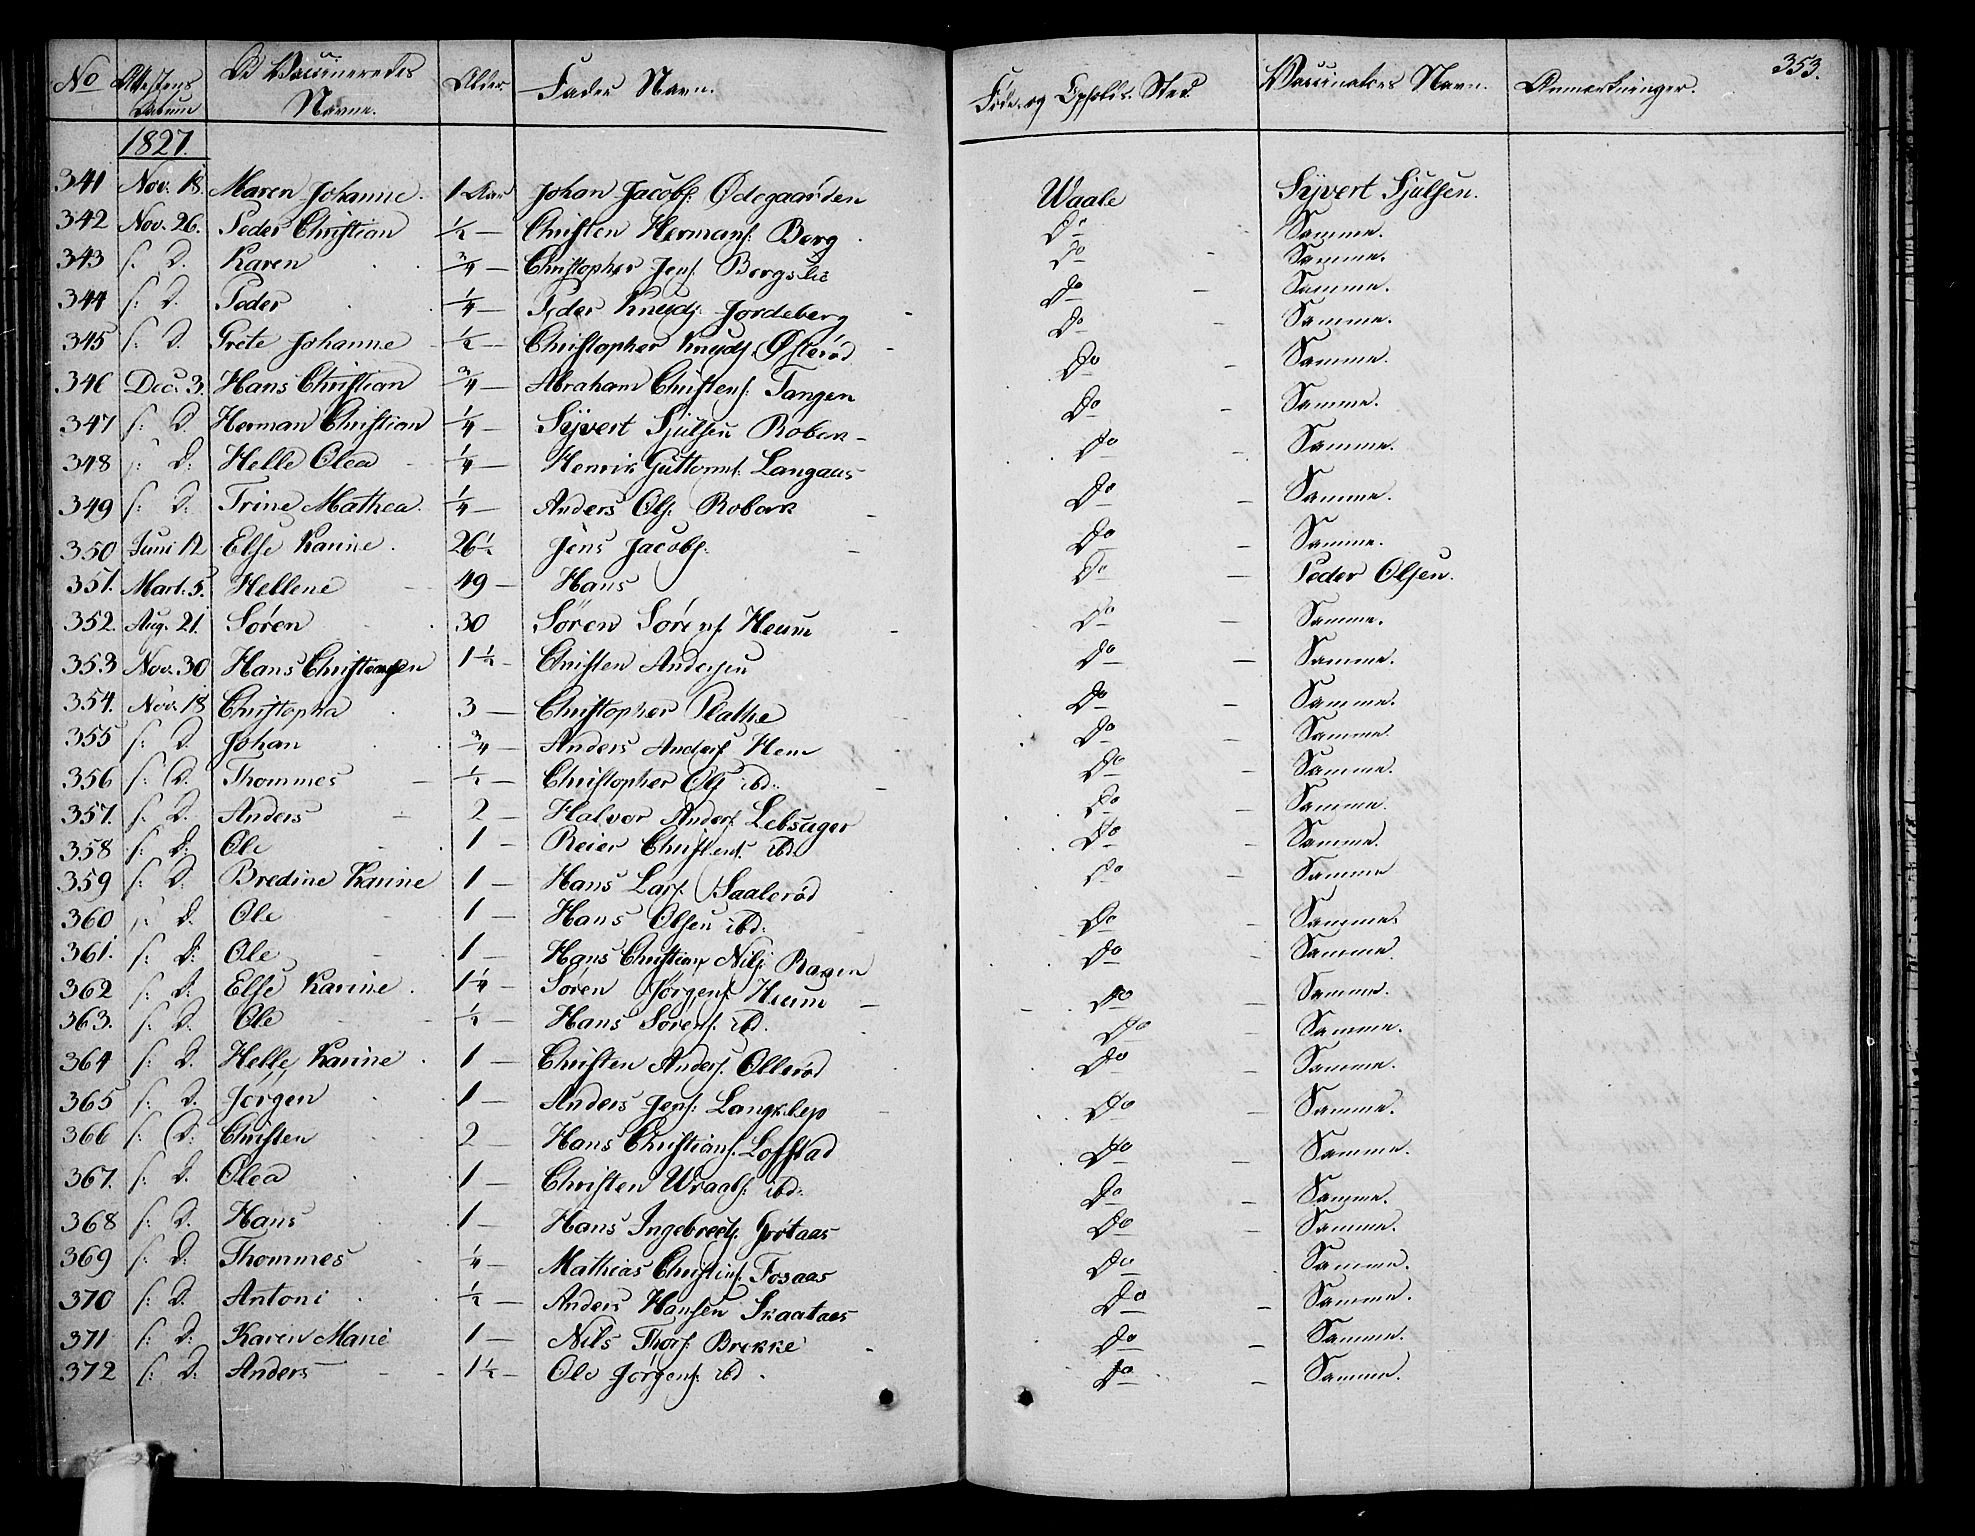 353.
No | Attestens Datum | De Vaccineredes Navne. | Alder | Fader Navn. | Føde og Opholds Sted. | Vaccinators Navn. | Anmerkninger.
1827.
341 | Nov. 18. | Maren Johanne. | 1 Aar | Johan Jacobs: Ødegaarden | Waale | Syvert Sjulsen.
342 | Nov. 26. | Peder Christian | ½ — | Christen Hermans: Berg | Do | Samme.
343 | s: D. | Karen | ¾ — | Christopher Jens: Bergslie | Do | Samme.
344 | s: D. | Peder | ¼ — | Peder Knuds: Jordeberg | Do | Samme.
345 | s: D. | Grete Johanne | ½ — | Christopher Knuds: Østerød | Do | Samme.
346 | Dec. 3. | Hans Christian | ¾ — | Abraham Christens: Tangen | Do | Samme.
347 | s: D. | Herman Christian | ¼ — | Syvert Sjulsen Robek | Do | Samme.
348 | s: D: | Helle Olea | ¼ — | Henrik Guttorms: Langaas | Do | Samme.
349 | s: D: | Trine Mathea. | ¼ — | Anders Ols: Robek | Do | Samme.
350 | Juni 12 | Else Karine. | 26½ | Jens Jacobs: | Do | Samme.
351. | Mart. 5. | Hellene | 49 — | Hans | Do | Peder Olsen.
352. | Aug. 21. | Søren | 30 | Søren Sørens: Heum | Do | Samme.
353 | Nov. 30 | Hans | 1½ - | Christen Andersen | Do | Samme.
354. | Nov. 18 | Christopha | 3 — | Christopher Plathe | Do | Samme.
355 | s: D. | Johan | ¾ — | Anders Anders: Hem | Do | Samme.
356 | s: D. | Thommes | ½ — | Christopher Ols: ibd: | Do | Samme.
357. | s: D. | Anders | 2 — | Halvor Anders: Lebsager | Do | Samme.
358 | s: D: | Ole | 1 — | Reier Christens: ibd: | Do | Samme.
359 | s: D: | Bredine Karine | 1 — | Hans Lars: Saalerød | Do | Samme
360 | s: D. | Ole | 1 — | Hans Olsen ibd: | Do | Samme.
361. | s: D: | Ole | 1 — | Hans Christian Nils: | Do | Samme.
362 | s: D: | Else Karine. | 1¼ - | Søren Jørgens: Heum | Do | Samme.
363. | s: D. | Ole | ½ — | Hans Sørens: ibd. | Do | Samme.
364 | s: D. | Helle Karine | 1 — | Christen Anders: Ollerød | Do | Samme.
365 | s: D. | Jørgen | 1 — | Anders Jens: Langslep | Do | Samme.
366 | s: D: | Christen | 2 — | Hans Christians: Lofstad | Do | Samme.
367. | s: D. | Olea | 1 — | Christen Wraals: ibd: | Do | Samme.
368 | s: D. | Hans | 1 — | Hans Ingebreds: Grøtaas | Do | Samme.
369 | s: D. | Thommes | ¼ — | Mathias Christens: Fosaas | Do | Samme.
370 | s: D. | Antoni | ½ — | Anders Hansen Skaataas | Do | Samme.
371 | s: D: | Karen Marie | 1 — | Nils Thors: Brekke | Do | Samme.
372 | s: D: | Anders | 1½ - | Ole Jørgens: ibd. | Do | Samme.